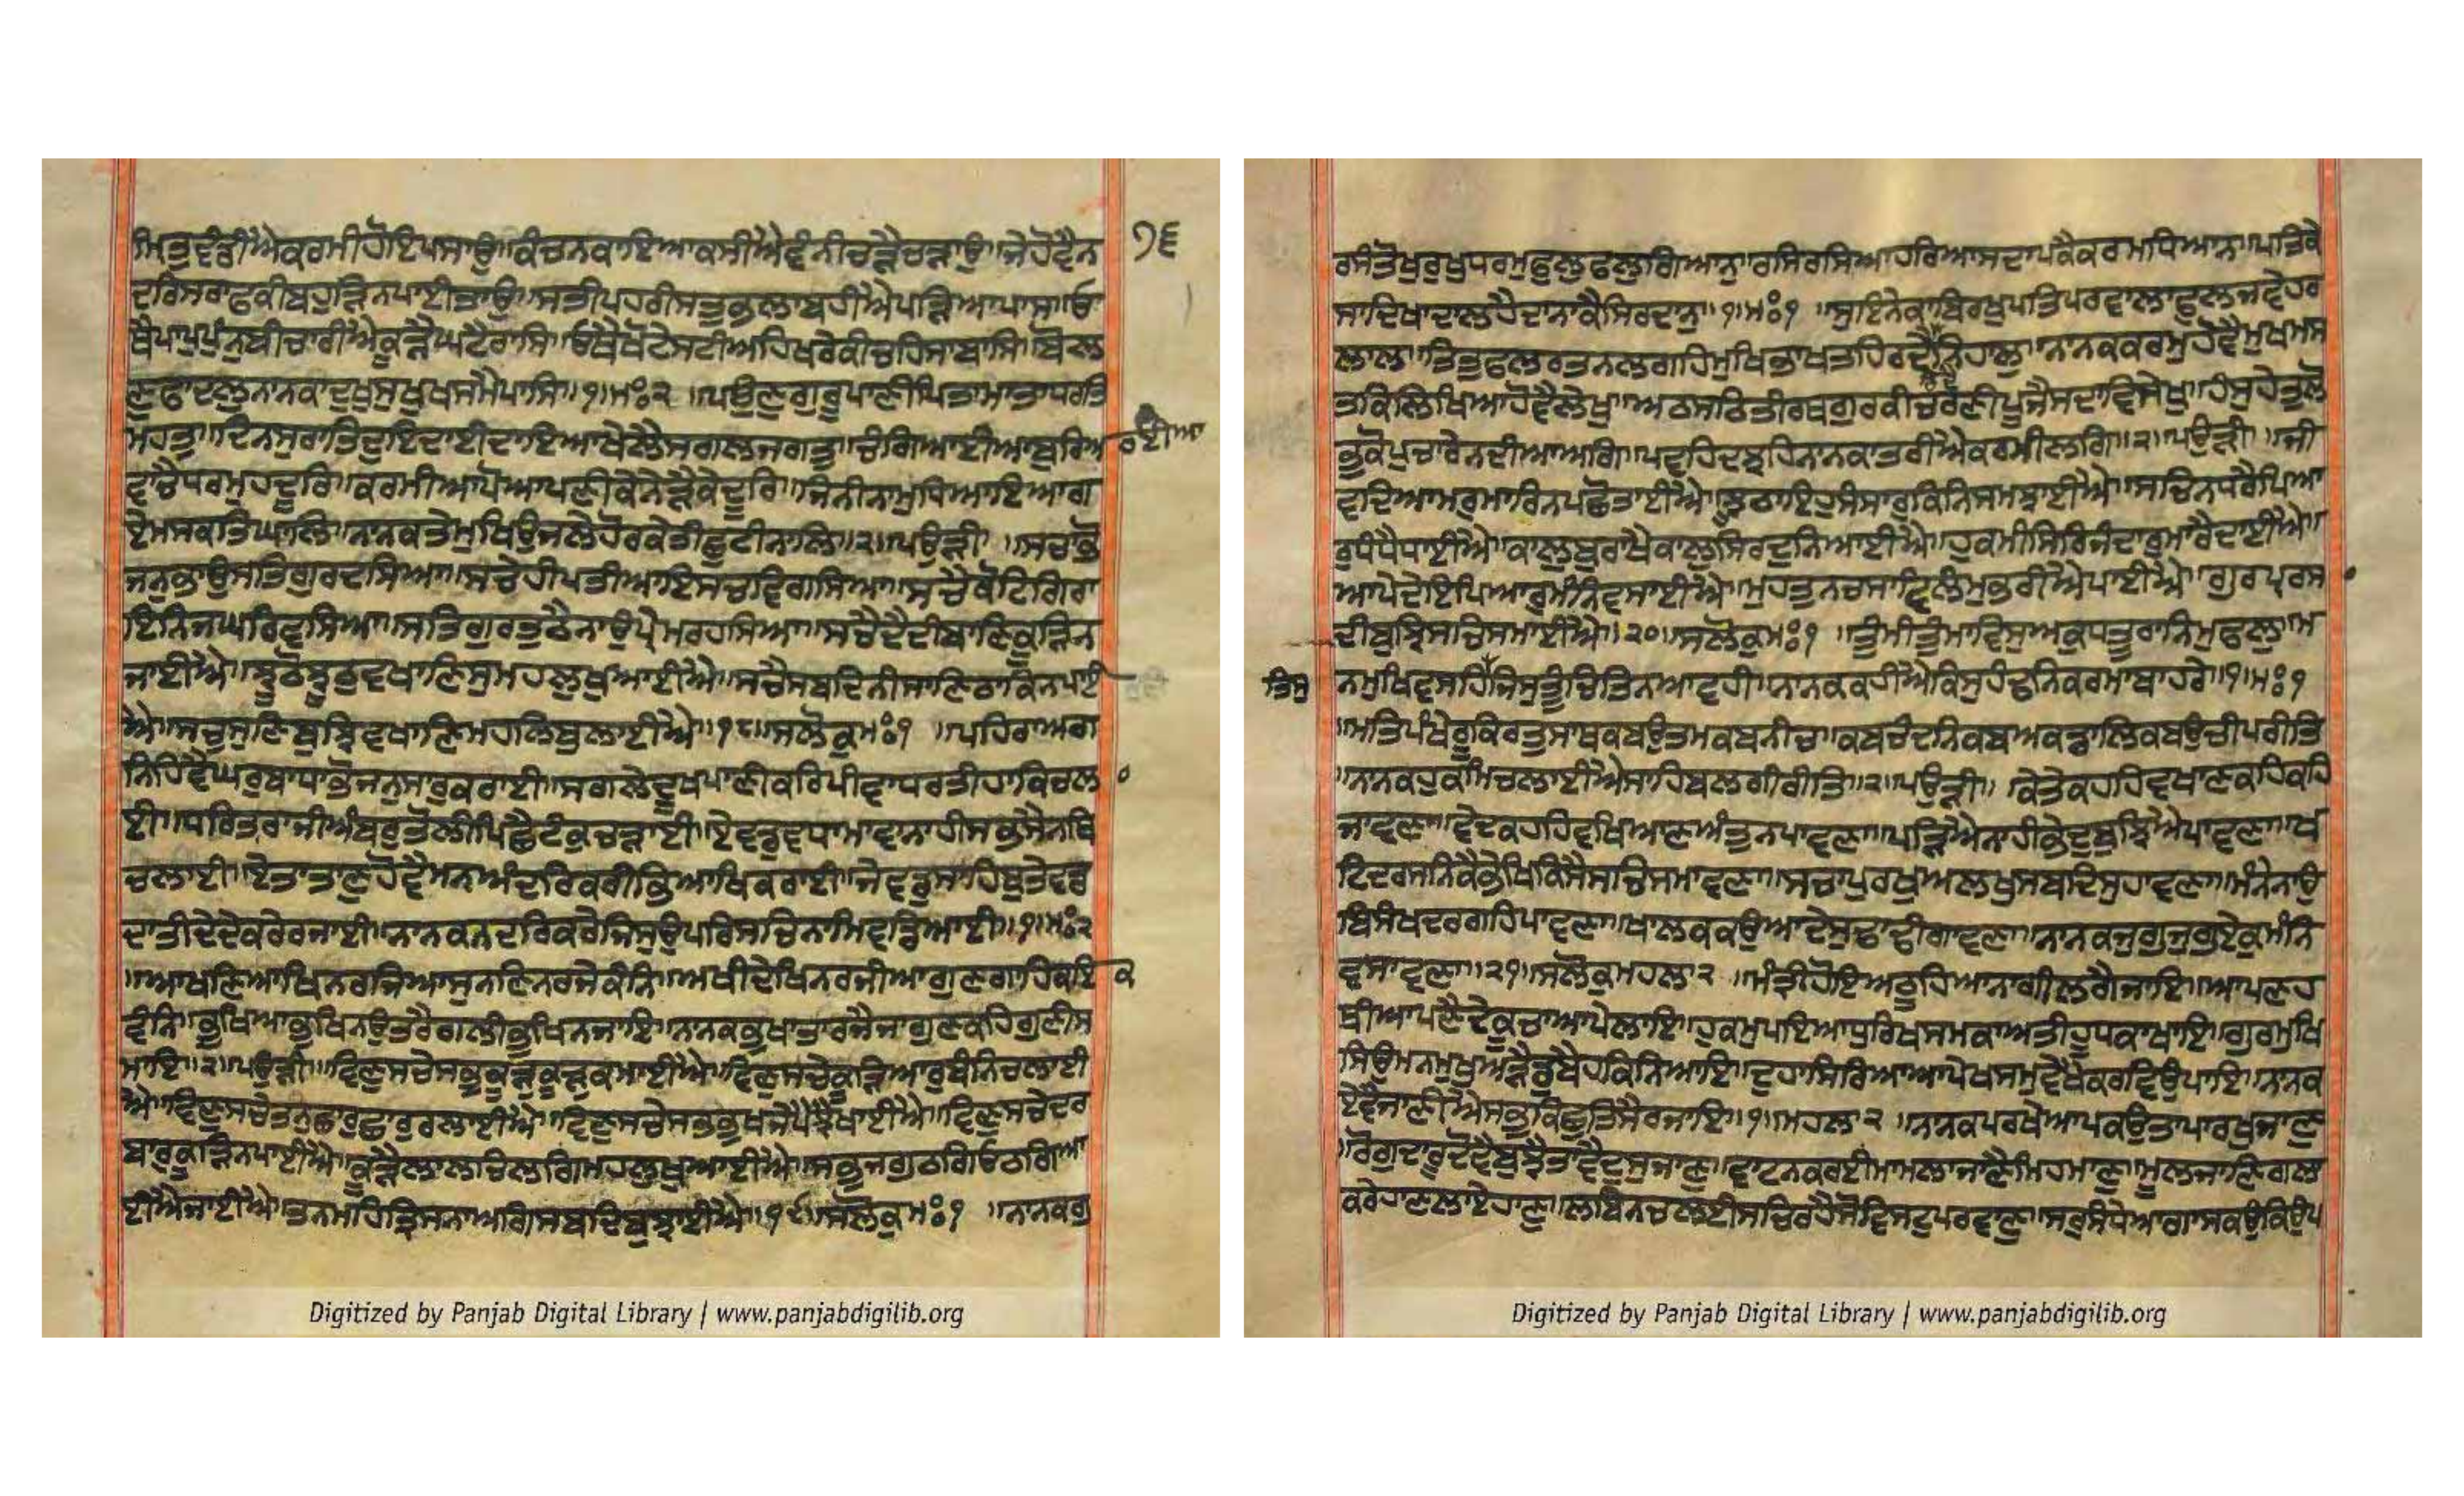 ਮਿਤੁਵੰਡੀਐਕਰਮੀਹੋਇਪਸਾਉ॥ਕੰਚਨਕਾਇਆਕਸੀਐਵੰਨੀਚੜੈਚੜਾਉ॥ਜੇਹੋਵੈਨ ੧੬
ਦਰਿਸਰਾਫਕੀਬਹੁੜਿਨਪਾਈਤਾਉ॥ਸਤੀਪਹਰੀਸਤੁਭਲਾਬਹੀਐਪੜਿਆਪਾਸਿ॥ਓ
ਥੈਪਾਪੁਪੁੰਨੁਬੀਚਾਰੀਐਕੂੜੈਘਟੈਰਾਸਿ॥ਓਥੈਖੋਟੇਸਟੀਅਹਿਖਰੇਕੀਚਹਿਸਾਬਾਸਿ॥ਬੋਲ
ਣੁਫਾਦਲੁਨਾਨਕਾਦੁਖੁਸੁਖੁਖਸਮੈਪਾਸਿ॥੧॥ਮਃ੨॥ਪਉਣੁਗੁਰੂਪਾਣੀਪਿਤਾਮਾਤਾਧਰਤਿ
ਮਹਤੁ॥ਦਿਨਸੁਰਾਤਿਦੁਇਦਾਈਦਾਇਆਖੇਲੈਸਗਲਜਗਤੁ॥ਚੰਗਿਆਈਆਬੁਰਿਆਈਆ
ਵਾਚੈਧਰਮੁਹਦੂਰਿ॥ਕਰਮੀਆਪੋਆਪਣੀਕੇਨੇੜੈਕੇਦੂਰਿ॥ਜਿਨੀਨਾਮੁਧਿਆਇਆਗ
ਏਮਸਕਤਿਘਾਲਿ॥ਨਾਨਕਤੇਮੁਖਿਉਜਲੇਹੋਰਕੇਤੀਛੁਟੀਨਾਲਿ॥੨॥ਪਉੜੀ॥ਸਚਾਭੋ
ਜਨੁਭਾਉਸਤਿਗੁਰਦਸਿਆ॥ਸਚੇਹੀਪਤੀਆਇਸਚਵਿਗਸਿਆ॥ਸਚੈਕੋਟਿਗਿਰਾ
ਇਨਿਜਘਰਿਵਸਿਆ॥ਸਤਿਗੁਰਤੁਠੈਨਾਉਪ੍ਰੇਮਰਹਸਿਆ॥ਸਚੈਦੈਦੀਬਾਣਿਕੂੜਿਨ
ਜਾਈਐ॥ਝੂਠੋਝੂਠੁਵਖਾਣਿਸੁਮਹਲੁਖੁਆਈਐ॥ਸਚੈਸਬਦਿਨੀਸਾਣਿਠਾਕਿਨਪਾਈ
ਐ॥ਸਚੁਸੁਣਿਬੁਝਿਵਖਾਣਿਮਹਲਿਬੁਲਾਈਐ॥੧੮॥ਸਲੋਕੁਮਃ੧॥ਪਹਿਰਾਅਗ
ਨਿਹਿਵੈਘਰੁਬਾਧਾਭੋਜਨੁਸਾਰੁਕਰਾਈ॥ਸਗਲੇਦੂਖਪਾਣੀਕਰਿਪੀਵਾਧਰਤੀਹਾਕਿਚਲਾ
ਈ॥ਧਰਿਤਰਾਜੀਅੰਬਰੁਤੋਲੀਪਿਛੈਟੰਕੁਚੜਾਈ॥ਏਵਡੁਵਧਾਮਾਵਾਨਾਹੀਸਭਸੈਨਥਿ
ਚਲਾਈ॥ਏਤਾਤਾਣੁਹੋਵੈਮਨਅੰਦਰਿਕਰੀਭਿਆਖਿਕਰਾਈ॥ਜੇਵਡੁਸਾਹਿਬੁਤੇਵਡ
ਦਾਤੀਦੇਦੇਕਰੇਰਜਾਈ॥ਨਾਨਕਨਦਰਿਕਰੇਜਿਸੁਉਪਰਿਸਚਿਨਾਮਿਵਡਿਆਈ॥੧॥ਮਃ੨
॥ਆਖਣਿਆਖਿਨਰਜਿਆਸੁਨਣਿਨਰਜੇਕੰਨਿ॥ਅਖੀਦੇਖਿਨਰਜੀਆਗੁਣਗਾਹਕਇਕ
ਵੰਨਿ॥ਭੁਖਿਆਭੁਖਿਨਉਤਰੈਗਲੀਭੁਖਿਨਜਾਇ॥ਨਾਨਕਭੁਖਾਤਾਰਜੈਜਾਗੁਣਕਹਿਗੁਣੀਸ
ਮਾਇ॥੨॥ਪਉੜੀ॥ਵਿਣੁਸਚੇਸਭੁਕੂੜੁਕੂੜੁਕਮਾਈਐ॥ਵਿਣੁਸਚੇਕੂੜਿਆਰੁਬੰਨਿਚਲਾਈ
ਐ॥ਵਿਣੁਸਚੇਤਨੁਛਾਰੁਛਾਰੁਰਲਾਈਐ॥ਵਿਣੁਸਚੇਸਭਭੁਖਜੇਪੈਝੈਖਾਈਐ॥ਵਿਣੁਸਚੇਦਰ
ਬਾਰੁਕੂੜਿਨਪਾਈਐ॥ਕੂੜੈਲਾਲਚਿਲਗਿਮਹਲੁਖੁਆਈਐ॥ਸਭੁਜਗੁਠਗਿਓਠਗਿਆ
ਈਐਜਾਈਐ॥ਤਨਮਹਿਤ੍ਰਿਸਨਾਅਗਿਸਬਦਿਬੁਝਾਈਐ॥੧੯॥ਸਲੋਕੁਮਃ੧॥ਨਾਨਕਗੁ
Digitized by Panjab Digital Library | www.panjabdigilib.org
ਰਸੰਤੋਖੁਰੁਖੁਧਰਮੁਫੁਲੁਫਲੁਗਿਆਨੁ॥ਰਸਿਰਸਿਆਹਰਿਆਸਦਾਪਕੈਕਰਮਧਿਆਨਾ॥ਪਤਿਕੇ
ਸਾਦਿਖਾਦਾਲਹੈਦਾਨਾਕੈਸਿਰਦਾਨੁ॥੧॥ਮਃ੧॥ਸੁਇਨੇਕਾਬਿਰਖੁਪਤਿਪਰਵਾਲਾਫੁਲਜਵੇਹਰ
ਲਾਲ॥ਤਿਤੁਫਲਰਤਨਲਗਹਿਮੁਖਿਭਾਖਤਹਿਰਦੈਰਿਦੈਨਿਹਾਲੁ॥ਨਾਨਕਕਰਮੁਹੋਵੈਮੁਖਮਸ
ਤਕਿਲਿਖਿਆਹੋਵੈਲੇਖੁ॥ਅਠਸਠਿਤੀਰਥਗੁਰਕੀਚਰਣੀਪੂਜੈਸਦਾਵਿਸੇਖੁ॥ਹੰਸੁਹੇਤੁਲੋ
ਭੁਕੋਪੁਚਾਰੇਨਦੀਆਅਗਿ॥ਪਵਹਿਦਝਹਿਨਾਨਕਾਤਰੀਐਕਰਮੀਲਗਿ॥੨॥ਪਉੜੀ॥ਜੀ
ਵਦਿਆਮਰੁਮਾਰਿਨਪਛੋਤਾਈਐ॥ਝੂਠਾਇਹੁਸੰਸਾਰੁਕਿਨਿਸਮਝਾਈਐ॥ਸਚਿਨਧਰੈਪਿਆ
ਰੁਧੰਧੈਧਾਈਐ॥ਕਾਲੁਬੁਰਾਖੈਕਾਲੁਸਿਰਦੁਨਿਆਈਐ॥ਹੁਕਮੀਸਿਰਿਜੰਦਾਰੁਮਾਰੇਦਾਈਐ॥
ਆਪੇਦੇਇਪਿਆਰੁਮੰਨਿਵਸਾਈਐ॥ਮੁਹਤੁਨਚਸਾਵਿਲੰਮੁਭਰੀਐਪਾਈਐ॥ਗੁਰਪ੍ਰਸਾ
ਦੀਬੁਝਿਸਚਿਸਮਾਈਐ॥੨੦॥ਸਲੋਕੁਮਃ੧॥ਤੁੰਮੀਤੁੰਮਾਵਿਸੁਅਕੁਧਤੂਰਾਨਿਮੁਫਲੁ॥ਮ
ਨਮੁਖਿਵਸਹਿਤਿਸੁਜਿਸੁਤੂੰਚਿਤਿਨਆਵਹੀ॥ਨਾਨਕਕਹੀਐਕਿਸੁਹੰਢਨਿਕਰਮਾਬਾਹਰੇ॥੧॥ਮਃ੧
॥ਮਤਿਪੰਖੇਰੂਕਿਰਤੁਸਾਥਕਬਉਤਮਕਬਨੀਚ॥ਕਬਚੰਦਨਿਕਬਅਕਡਾਲਿਕਬਉਚੀਪਰੀਤਿ
॥ਨਾਨਕਹੁਕਮਿਚਲਾਈਐਸਾਹਿਬਲਗੀਰੀਤਿ॥੨॥ਪਉੜੀ॥ਕੇਤੇਕਹਹਿਵਖਾਣਕਹਿਕਹਿ
ਜਾਵਣਾ॥ਵੇਦਕਹਹਿਵਖਿਆਣਅੰਤੁਨਪਾਵਣਾ॥ਪੜਿਐਨਾਹੀਭੇਦੁਬੁਝਿਐਪਾਵਣਾ॥ਖ
ਟਿਦਰਸਨਿਕੈਭੇਖਿਕਿਸੈਸਚਿਸਮਾਵਣਾ॥ਸਚਾਪੁਰਖੁਅਲਖੁਸਬਦਿਸੁਹਾਵਣਾ॥ਮੰਨੇਨਾਉ
ਬਿਸੰਖਦਰਗਹਪਾਵਣਾ॥ਖਾਲਕਕਉਆਦੇਸੁਢਾਢੀਗਾਵਣਾ॥ਨਾਨਕਜੁਗੁਜੁਗੁਏਕੁਮੰਨਿ
ਵਸਾਵਣਾ॥੨੧॥ਸਲੋਕੁਮਹਲਾ੨॥ਮੰਤ੍ਰੀਹੋਇਅਠੂਹਿਆਨਾਗੀਲਗੈਜਾਇ॥ਆਪਣਹ
ਥੀਆਪਣੈਦੇਕੂਚਾਆਪੇਲਾਇ॥ਹੁਕਮੁਪਇਆਧੁਰਿਖਸਮਕਾਅਤੀਹੂਧਕਾਖਾਇ॥ਗੁਰਮੁਖਿ
ਸਿਉਮਨਮੁਖੁਅੜੈਡੁਬੈਹਕਿਨਿਆਇ॥ਦੁਹਾਸਿਰਿਆਆਪੇਖਸਮੁਵੇਖੈਕਰਵਿਉਪਾਇ॥ਨਾਨਕ
ਏਵੈਜਾਣੀਐਸਭਕਿਛੁਤਿਸੈਰਜਾਇ॥੧॥ਮਹਲਾ੨॥ਨਾਨਕਪਰਖੇਆਪਕਉਤਾਪਾਰਖੁਜਾਣੁ
॥ਰੋਗੁਦਾਰੂਦੋਵੈਬੁਝੈਤਾਵੈਦੁਸੁਜਾਣੁ॥ਵਾਟਨਕਰਈਮਾਮਲਾਜਾਣੈਮਿਹਮਾਣੁ॥ਮੂਲੁਜਾਣਿਗਲਾ
ਕਰੇਹਾਣਿਲਾਏਹਾਣੁ॥ਲਬਿਨਚਲਈਸਚਿਰਹੈਸੋਵਿਸਟੁਪਰਵਾਣੁ॥ਸਰੁਸੰਧੇਆਗਾਸਕਉਕਿਉਪ
Digitized by Panjab Digital Library | www.panjabdigilib.org